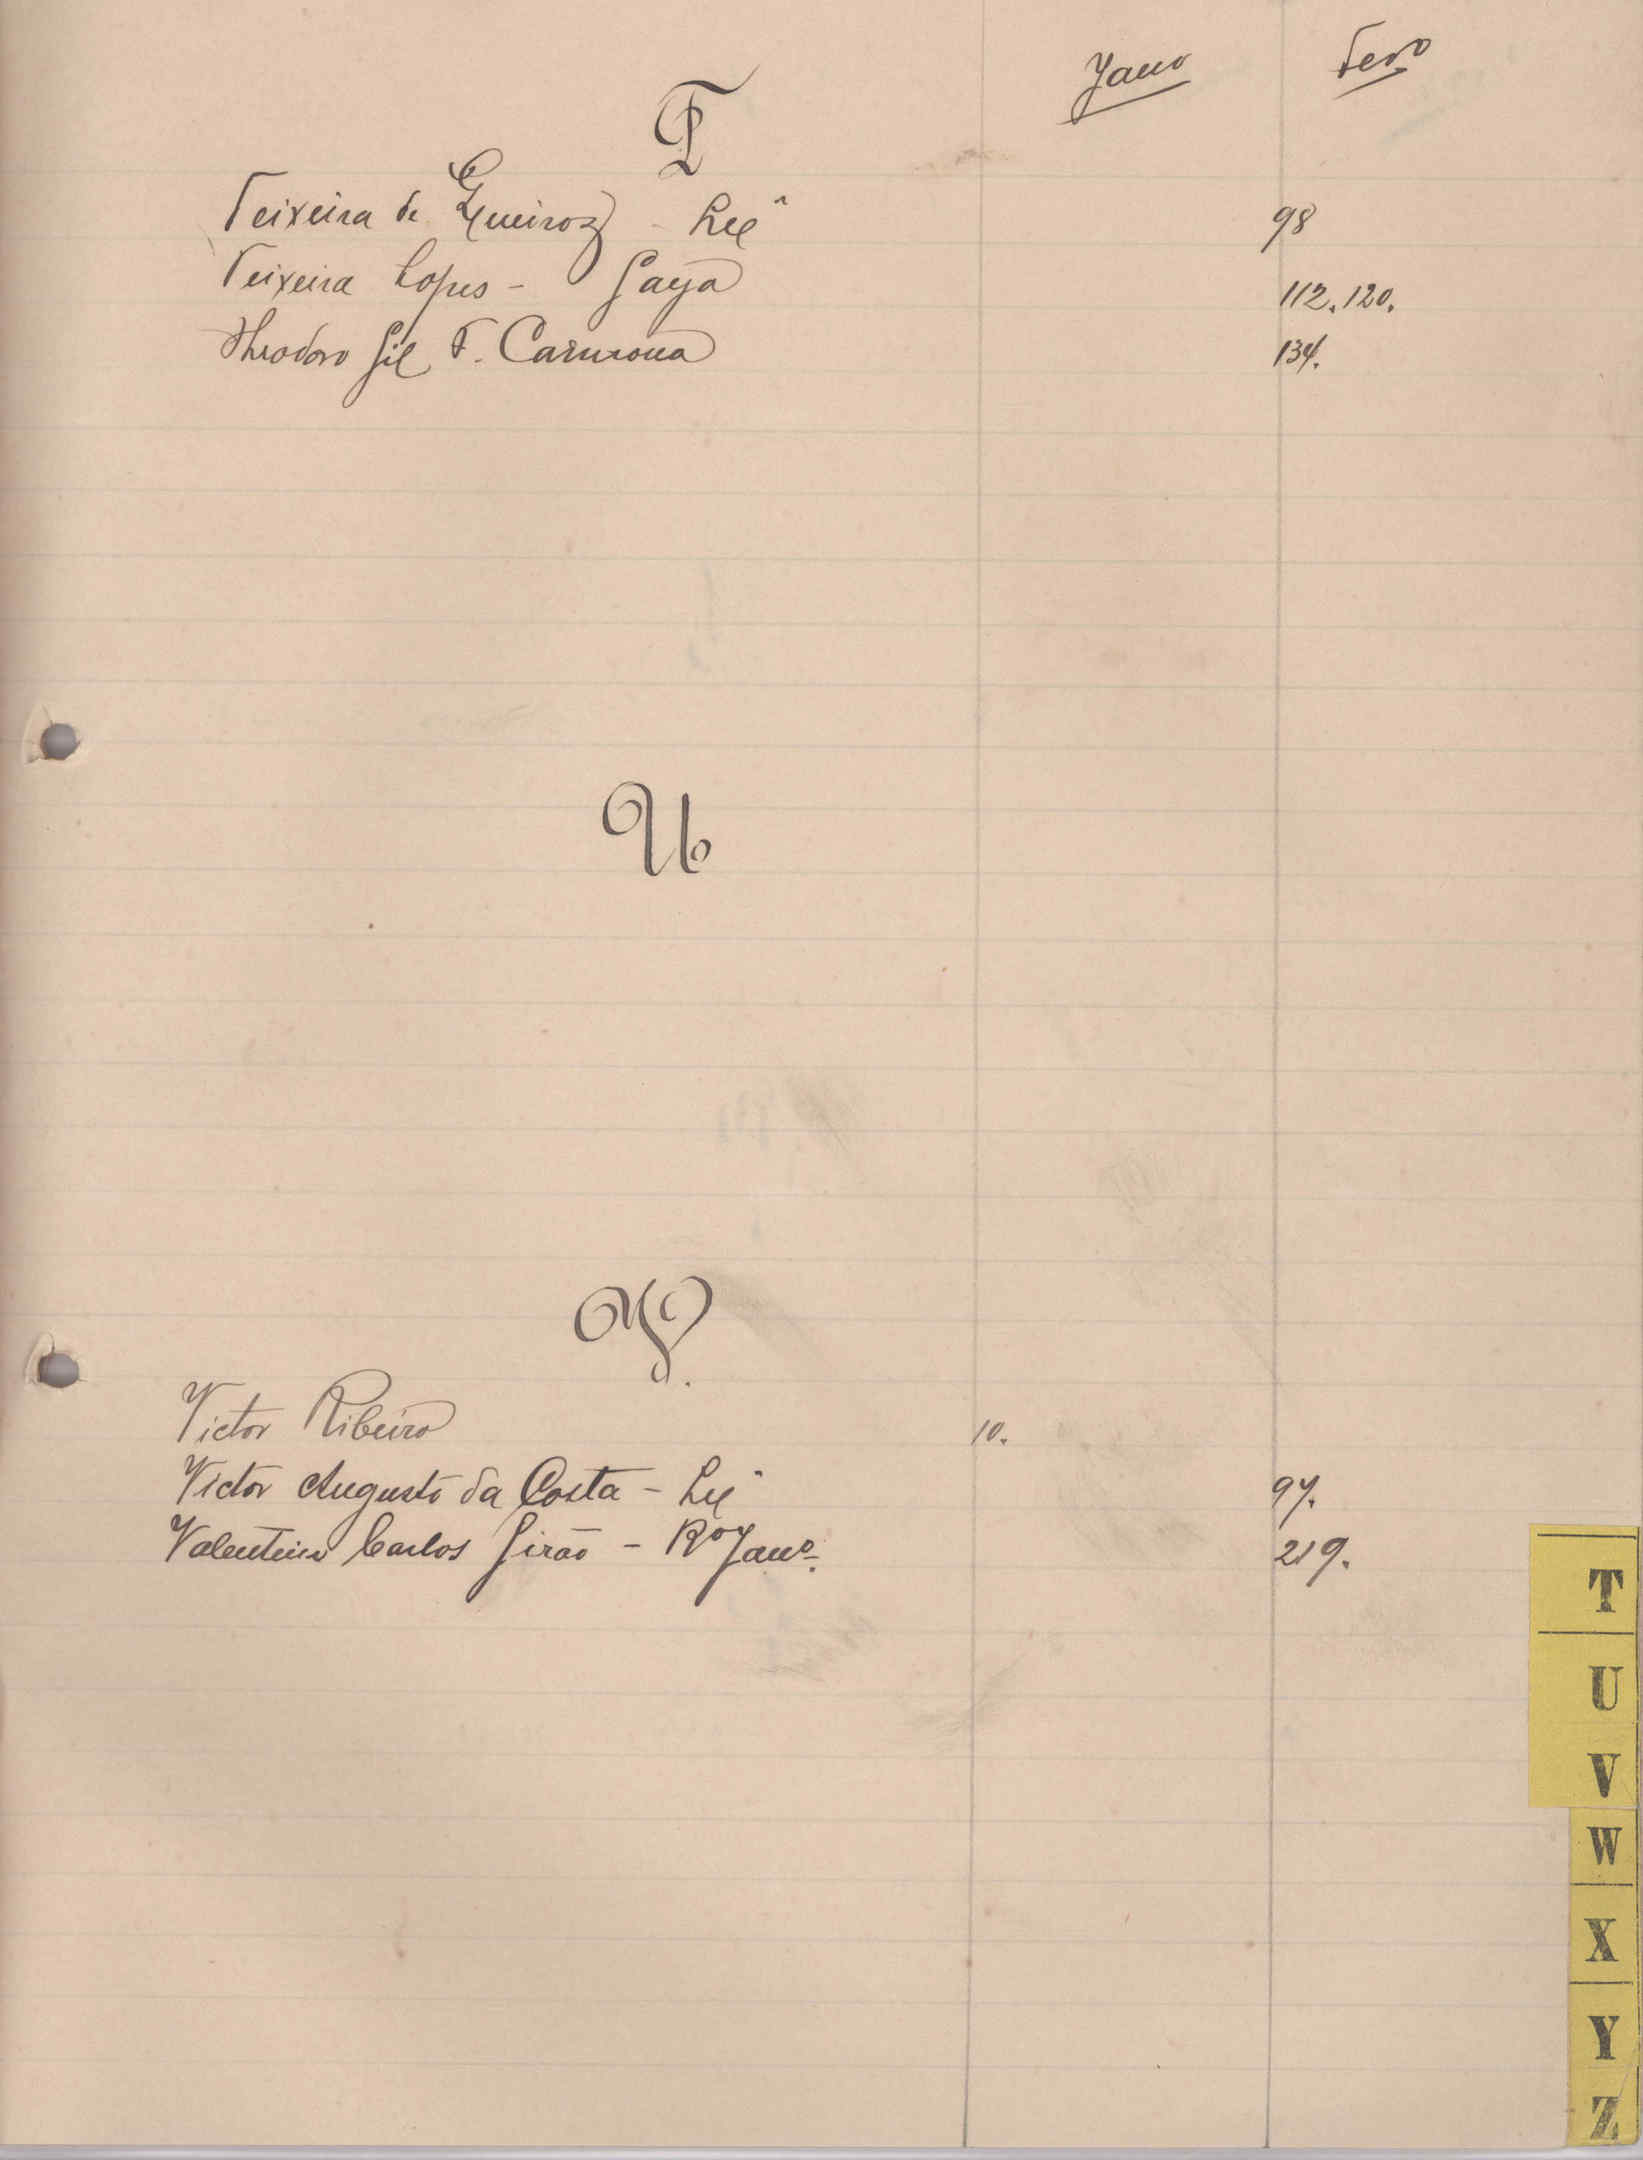 Janº Fevº
T
Teixeira de Queiroz - Lxª 98
Teixeira Lopes - Gaya 112. 120.
Theodoro Gil F.
U
V.
Victor Ribeiro 10.
Victor Augusto da Costa - Lxª 97.
Valentim Carlos Girão - Rº Janº. 219.
134.
T
U
V
W
X
Y
Z